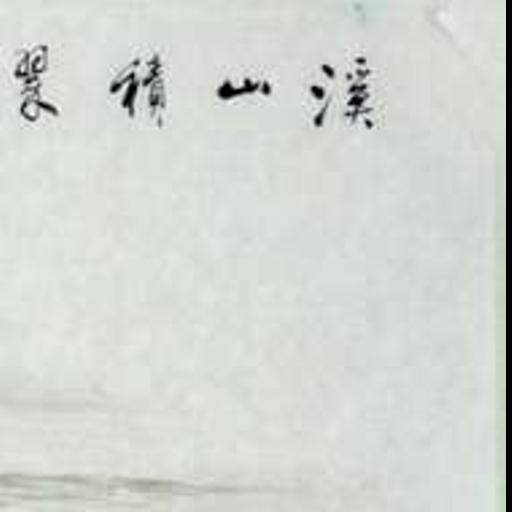 溪山積翠